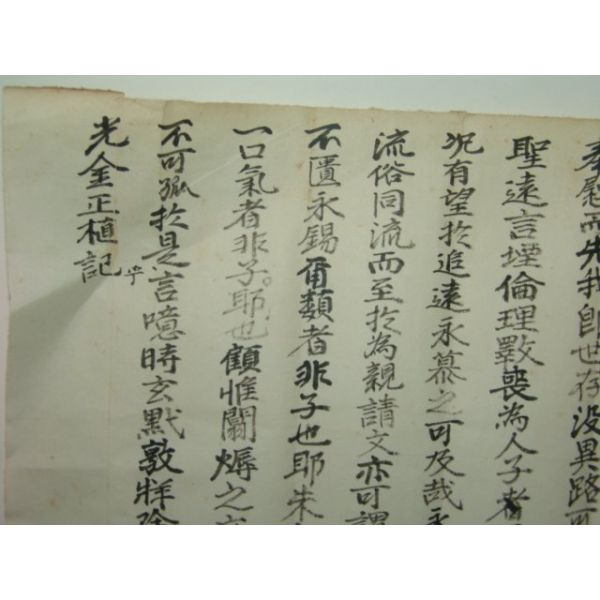 奉慰而先我卽世存沒異路可
聖遠言堙倫理斁喪為人子者
况有望於追遠永慕之可及哉
流俗同流而至於為親請文亦可謂
不匱永錫爾類者非子也耶朱
一口氣者非子耶也顧惟闒𦗨之
不可孤於是言噫時玄黓敦牂除
光金正植記